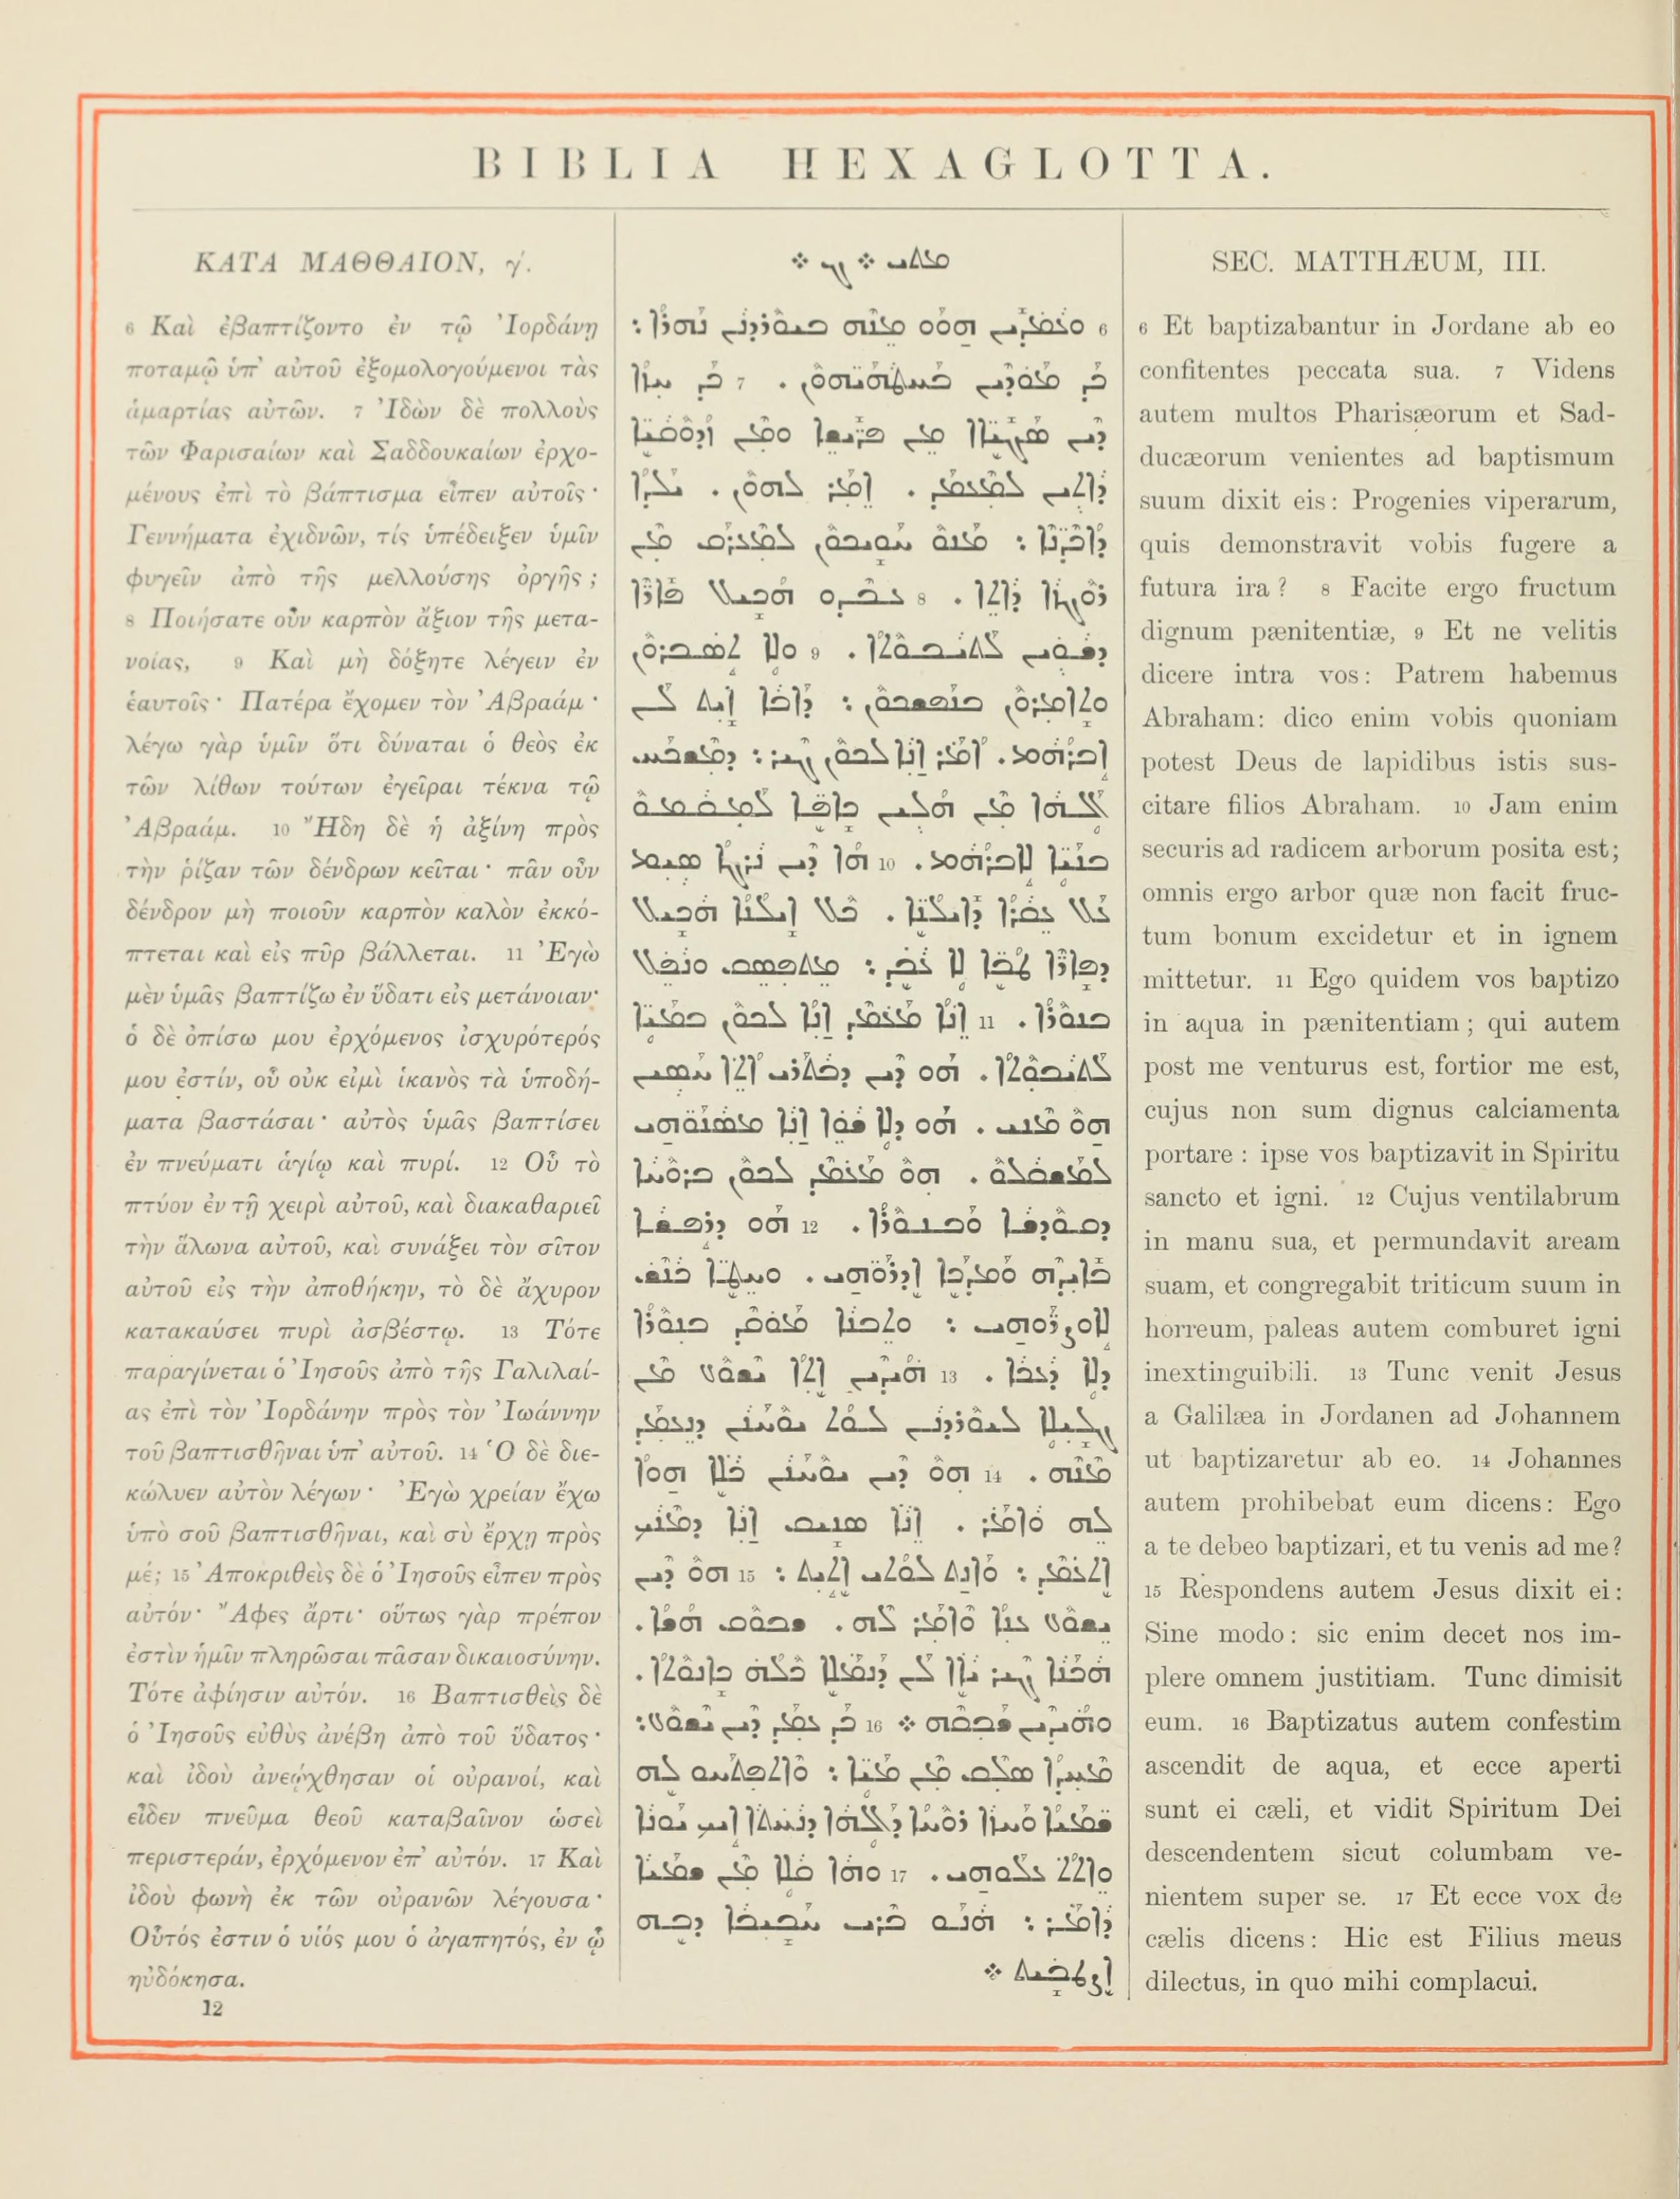 BIBLIA HEXAGLOTTA.
ΚΑΤΑ ΜΑΘΘΑΙΟΝ, γ΄.
6 Καὶ ἐβαπτίζοντο ἐν τῷ Ἰορδάνῃ
ποταμῷ ὑπ’ αὐτοῦ ἐξομολογούμενοι τὰς
ἁμαρτίας αὐτῶν. 7 Ἰδὼν δὲ πολλοὺς
τῶν Φαρισαίων καὶ Σαδδουκαίων ἐρχο-
μένους ἐπὶ τὸ βάπτισμα εἶπεν αὐτοῖς·
Γεννήματα ἐχιδνῶν, τίς ὑπέδειξεν ὑμῖν
φυγεῖν ἀπὸ τῆς μελλούσης ὀργῆς;
8 Ποιήσατε οὖν καρπὸν ἄξιον τῆς μετα-
νοίας, 9 Καὶ μὴ δόξητε λέγειν ἐν
ἑαυτοῖς· Πατέρα ἔχομεν τὸν Ἀβραάμ·
λέγω γὰρ ὑμῖν ὅτι δύναται ὁ θεὸς ἐκ
τῶν λίθων τούτων ἐγεῖραι τέκνα τῷ
Ἀβραάμ. 10 Ἤδη δὲ ἡ ἀξίνη πρὸς
τὴν ῥίζαν τῶν δένδρων κεῖται· πᾶν οὖν
δένδρον μὴ ποιοῦν καρπὸν καλὸν ἐκκό-
πτεται καὶ εἰς πῦρ βάλλεται. 11 Ἐγὼ
μὲν ὑμᾶς βαπτίζω ἐν ὕδατι εἰς μετάνοιαν·
ὁ δὲ ὀπίσω μου ἐρχόμενος ἰσχυρότερός
μου ἐστίν, οὗ οὐκ εἰμὶ ἱκανὸς τὰ ὑποδή-
ματα βαστάσαι· αὐτὸς ὑμᾶς βαπτίσει
ἐν πνεύματι ἁγίῳ καὶ πυρί. 12 Οὗ τὸ
πτύον ἐν τῇ χειρὶ αὐτοῦ, καὶ διακαθαριεῖ
τὴν ἅλωνα αὐτοῦ, καὶ συνάξει τὸν σῖτον
αὐτοῦ εἰς τὴν ἀποθήκην, τὸ δὲ ἄχυρον
κατακαύσει πυρὶ ἀσβέστῳ. 13 Τότε
παραγίνεται ὁ Ἰησοῦς ἀπὸ τῆς Γαλιλαί-
ας ἐπὶ τὸν Ἰορδάνην πρὸς τὸν Ἰωάννην
τοῦ βαπτισθῆναι ὑπ’ αὐτοῦ. 14 Ὁ δὲ διε-
κώλυεν αὐτὸν λέγων· Ἐγὼ χρείαν ἔχω
ὑπὸ σοῦ βαπτισθῆναι, καὶ σὺ ἔρχῃ πρὸς
μέ; 15 Ἀποκριθεὶς δὲ ὁ Ἰησοῦς εἶπεν πρὸς
αὐτόν· Ἄφες ἄρτι· οὕτως γὰρ πρέπον
ἐστὶν ἡμῖν πληρῶσαι πᾶσαν δικαιοσύνην.
Τότε ἀφίησιν αὐτόν. 16 Βαπτισθεὶς δὲ
ὁ Ἰησοῦς εὐθὺς ἀνέβη ἀπὸ τοῦ ὕδατος·
καὶ ἰδοὺ ἀνεῴχθησαν οἱ οὐρανοί, καὶ
εἶδεν πνεῦμα θεοῦ καταβαῖνον ὡσεὶ
περιστεράν, ἐρχόμενον ἐπ’ αὐτόν. 17 Καὶ
ἰδοὺ φωνὴ ἐκ τῶν οὐρανῶν λέγουσα·
Οὗτός ἐστιν ὁ υἱός μου ὁ ἀγαπητός, ἐν ᾧ
ηὐδόκησα.
12
ܡܬܝ ܀ ܓ ܀
6 ܘܥܡܕܝܢ ܗܘܘ ܡܢܗ ܒܝܘܪܕܢܢ ܢܗܪܐ :
ܟܕ ܡܘܕܝܢ ܒܚܛܗܝܗܘܢ . 7 ܟܕ ܚܙܐ
ܕܝܢ ܣܓܝܐܐ ܡܢ ܦܪܝܫܐ ܘܡܢ ܙܕܘܩܝܐ
ܕܐܬܝܢ ܠܡܥܡܕ . ܐܡܪ ܠܗܘܢ . ܝܠܕܐ
ܕܐܟܕܢܐ : ܡܢܘ ܚܘܝܟܘܢ ܠܡܥܪܩ ܡܢ
ܪܘܓܙܐ ܕܐܬܐ . 8 ܥܒܕܘ ܗܟܝܠ ܦܐܪܐ
ܕܫܘܝܢ ܠܬܝܒܘܬܐ . 9 ܘܠܐ ܬܣܒܪܘܢ
ܘܬܐܡܪܘܢ ܒܢܦܫܟܘܢ : ܕܐܒܐ ܐܝܬ ܠܢ
ܐܒܪܗܡ . ܐܡܪ ܐܢܐ ܠܟܘܢ ܓܝܪ : ܕܡܫܟܚ
ܐܠܗܐ ܡܢ ܗܠܝܢ ܟܐܦܐ ܠܡܩܡܘ
ܒܢܝܐ ܠܐܒܪܗܡ . 10 ܗܐ ܕܝܢ ܢܪܓܐ ܣܝܡ
ܥܠ ܥܩܪܐ ܕܐܝܠܢܐ . ܟܠ ܐܝܠܢܐ ܗܟܝܠ
ܕܦܐܪܐ ܛܒܐ ܠܐ ܥܒܕ : ܡܬܦܣܩ ܘܢܦܠ
ܒܢܘܪܐ . 11 ܐܢܐ ܡܥܡܕ ܐܢܐ ܠܟܘܢ ܒܡܝܐ
ܠܬܝܒܘܬܐ . ܗܘ ܕܝܢ ܕܒܬܪܝ ܐܬܐ ܚܣܝܢ
ܗܘ ܡܢܝ . ܗܘ ܕܠܐ ܫܘܐ ܐܢܐ ܡܣܢܘܗܝ
ܠܡܫܩܠ . ܗܘ ܡܥܡܕ ܠܟܘܢ ܒܪܘܚܐ
ܕܩܘܕܫܐ ܘܒܢܘܪܐ . 12 ܗܘ ܕܪܦܫܐ
ܒܐܝܕܗ ܘܡܕܟܐ ܐܕܪܘܗܝ . ܘܚܛܐ ܟܢܫ
ܠܐܘܨܪܘܗܝ : ܘܬܒܢܐ ܡܘܩܕ ܒܢܘܪܐ
ܕܠܐ ܕܥܟܐ . 13 ܗܝܕܝܢ ܐܬܐ ܝܫܘܥ ܡܢ
ܓܠܝܠܐ ܠܝܘܪܕܢܢ ܠܘܬ ܝܘܚܢܢ ܕܢܥܡܕ
ܡܢܗ . 14 ܗܘ ܕܝܢ ܝܘܚܢܢ ܟܠܐ ܗܘܐ
ܠܗ ܘܐܡܪ . ܐܢܐ ܣܢܝܩ ܐܢܐ ܕܡܢܟ
ܐܬܥܡܕ : ܘܐܢܬ ܠܘܬܝ ܐܬܝܬ : 15 ܗܘ ܕܝܢ
ܝܫܘܥ ܥܢܐ ܘܐܡܪ ܠܗ . ܫܒܘܩ ܗܫܐ .
ܗܟܢܐ ܓܝܪ ܝܐܐ ܠܢ ܕܢܡܠܐ ܟܠܗ ܟܐܢܘܬܐ .
ܘܗܝܕܝܢ ܫܒܩܗ ܀ 16 ܟܕ ܥܡܕ ܕܝܢ ܝܫܘܥ :
ܡܚܕܐ ܣܠܩ ܡܢ ܡܝܐ : ܘܐܬܦܬܚܘ ܠܗ
ܫܡܝܐ ܘܚܙܐ ܪܘܚܐ ܕܐܠܗܐ ܕܢܚܬܐ ܐܝܟ ܝܘܢܐ
ܘܐܬܬ ܥܠܘܗܝ . 17 ܘܗܐ ܩܠܐ ܡܢ ܫܡܝܐ
ܕܐܡܪ : ܗܢܘ ܒܪܝ ܚܒܝܒܐ ܕܒܗ
ܐܨܛܒܝܬ ܀
SEC. MATTHÆUM, III.
6 Et baptizabantur in Jordane ab eo
confitentes peccata sua. 7 Videns
autem multos Pharisæorum et Sad-
ducæorum venientes ad baptismum
suum dixit eis: Progenies viperarum,
quis demonstravit vobis fugere a
futura ira? 8 Facite ergo fructum
dignum pænitentiæ, 9 Et ne velitis
dicere intra vos: Patrem habemus
Abraham: dico enim vobis quoniam
potest Deus de lapidibus istis sus-
citare filios Abraham. 10 Jam enim
securis ad radicem arborum posita est;
omnis ergo arbor quæ non facit fruc-
tum bonum excidetur et in ignem
mittetur. 11 Ego quidem vos baptizo
in aqua in pænitentiam; qui autem
post me venturus est, fortior me est,
cujus non sum dignus calciamenta
portare: ipse vos baptizavit in Spiritu
sancto et igni. 12 Cujus ventilabrum
in manu sua, et permundavit aream
suam, et congregabit triticum suum in
horreum, paleas autem comburet igni
inextinguibili. 13 Tunc venit Jesus
a Galilæa in Jordanen ad Johannem
ut baptizaretur ab eo. 14 Johannes
autem prohibebat eum dicens: Ego
a te debeo baptizari, et tu venis ad me?
15 Respondens autem Jesus dixit ei:
Sine modo: sic enim decet nos im-
plere omnem justitiam. Tunc dimisit
eum. 16 Baptizatus autem confestim
ascendit de aqua, et ecce aperti
sunt ei cæli, et vidit Spiritum Dei
descendentem sicut columbam ve-
nientem super se. 17 Et ecce vox de
cælis dicens: Hic est Filius meus
dilectus, in quo mihi complacui.